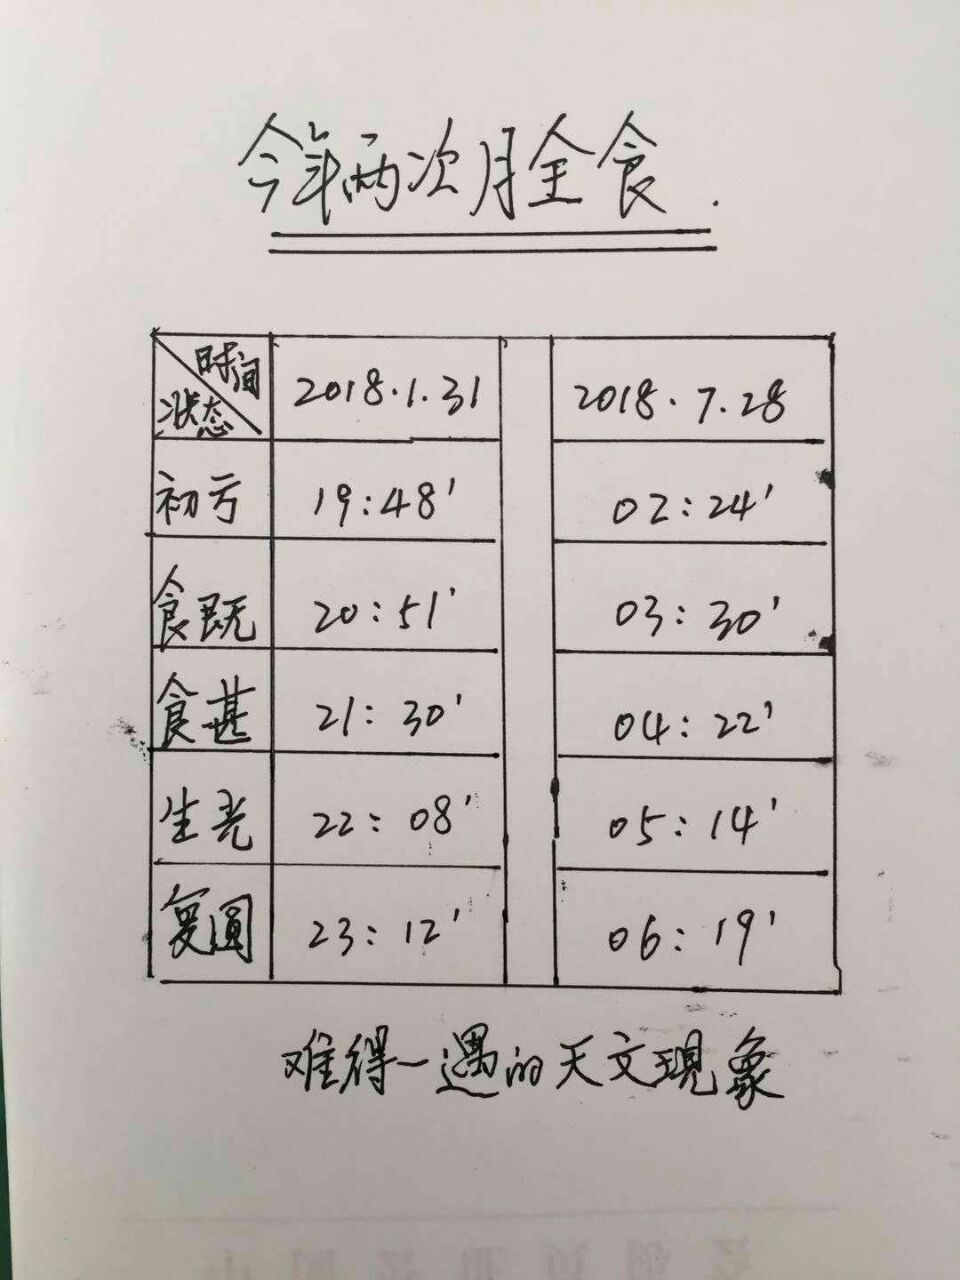 今年两次月全食.
时间
状态 2018.1.31 2018.7.28
初亏 19:48' 02:24'
食既 20:51' 03:30'
食甚 21:30' 04:22'
生光 22:08' 05:14'
复圆 23:12' 06:19'
难得一遇的天文現象